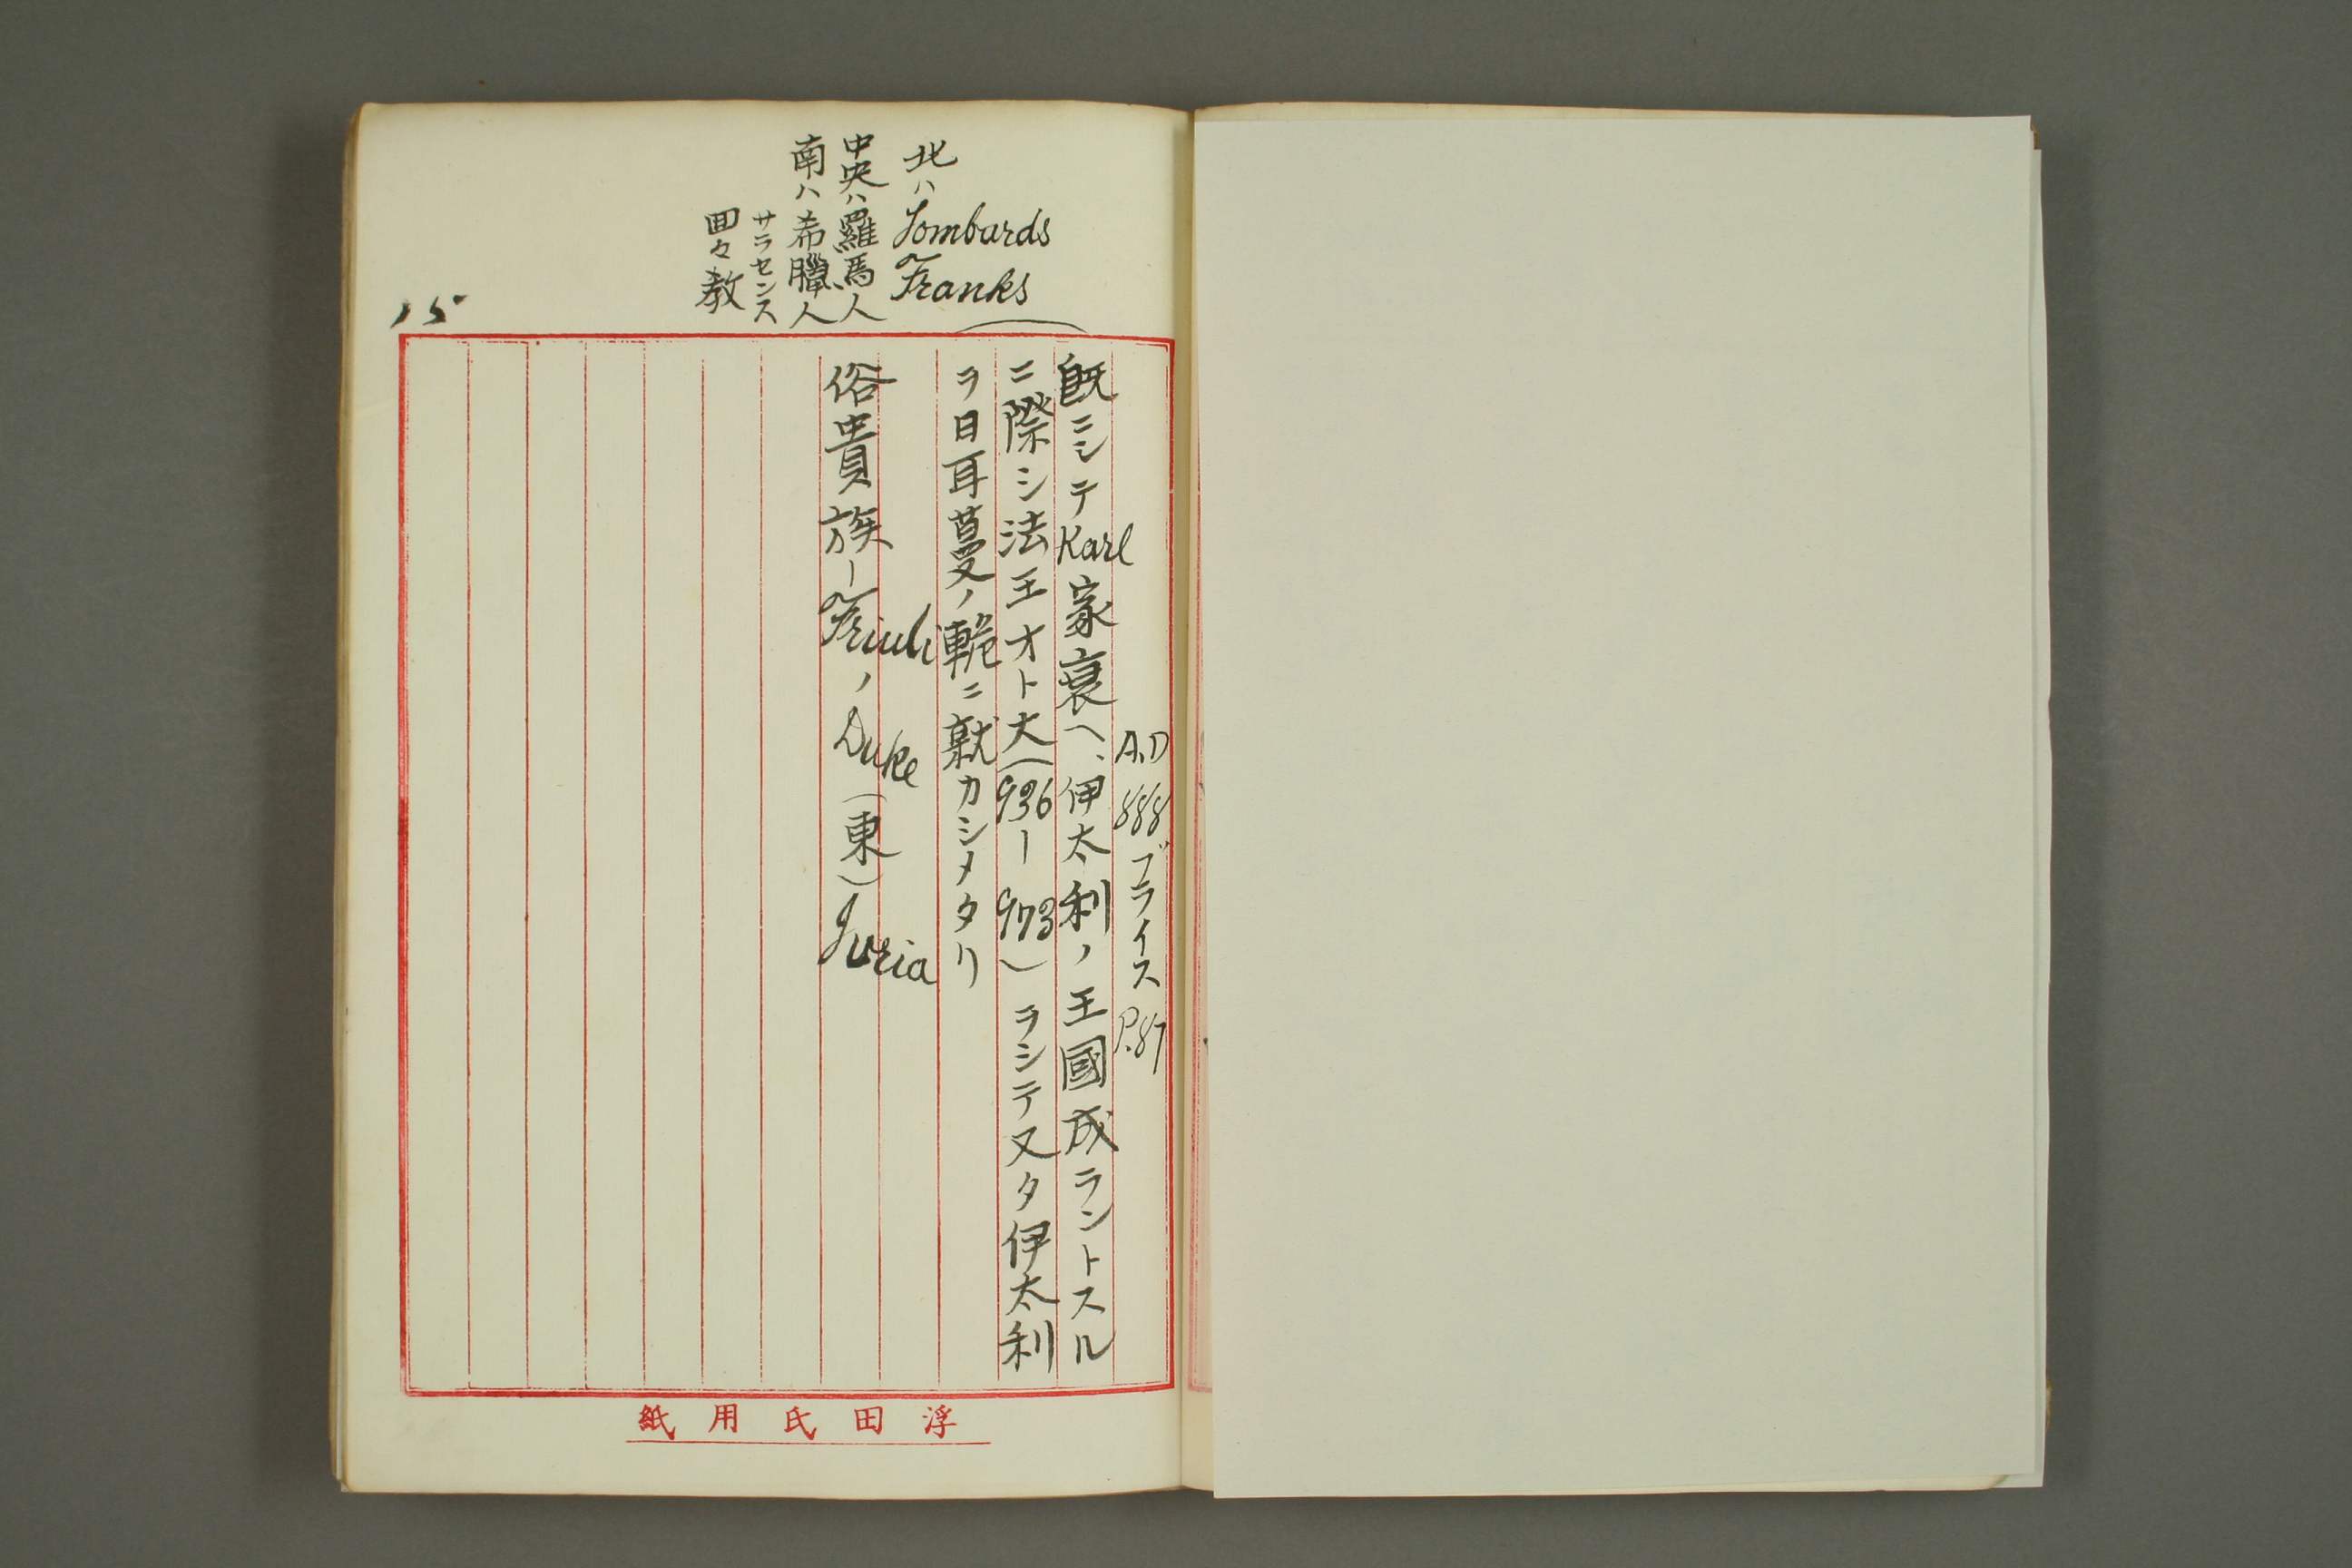 北ハ Lombards
Franks
中央ハ羅馬人
南ハ希臘人
サラセンス
回々教
15
A.D 888 ブライス P.87
既ニシテKarl家衰へ、伊太利ノ王國成ラントスル
ニ際シ法王オト大(936ー973)ヲシテ又タ伊太利
ヲ日耳蔓ノ軛ニ就カシメタリ
俗貴族ーFriuliノDuke(東)Ivria
浮田氏用紙